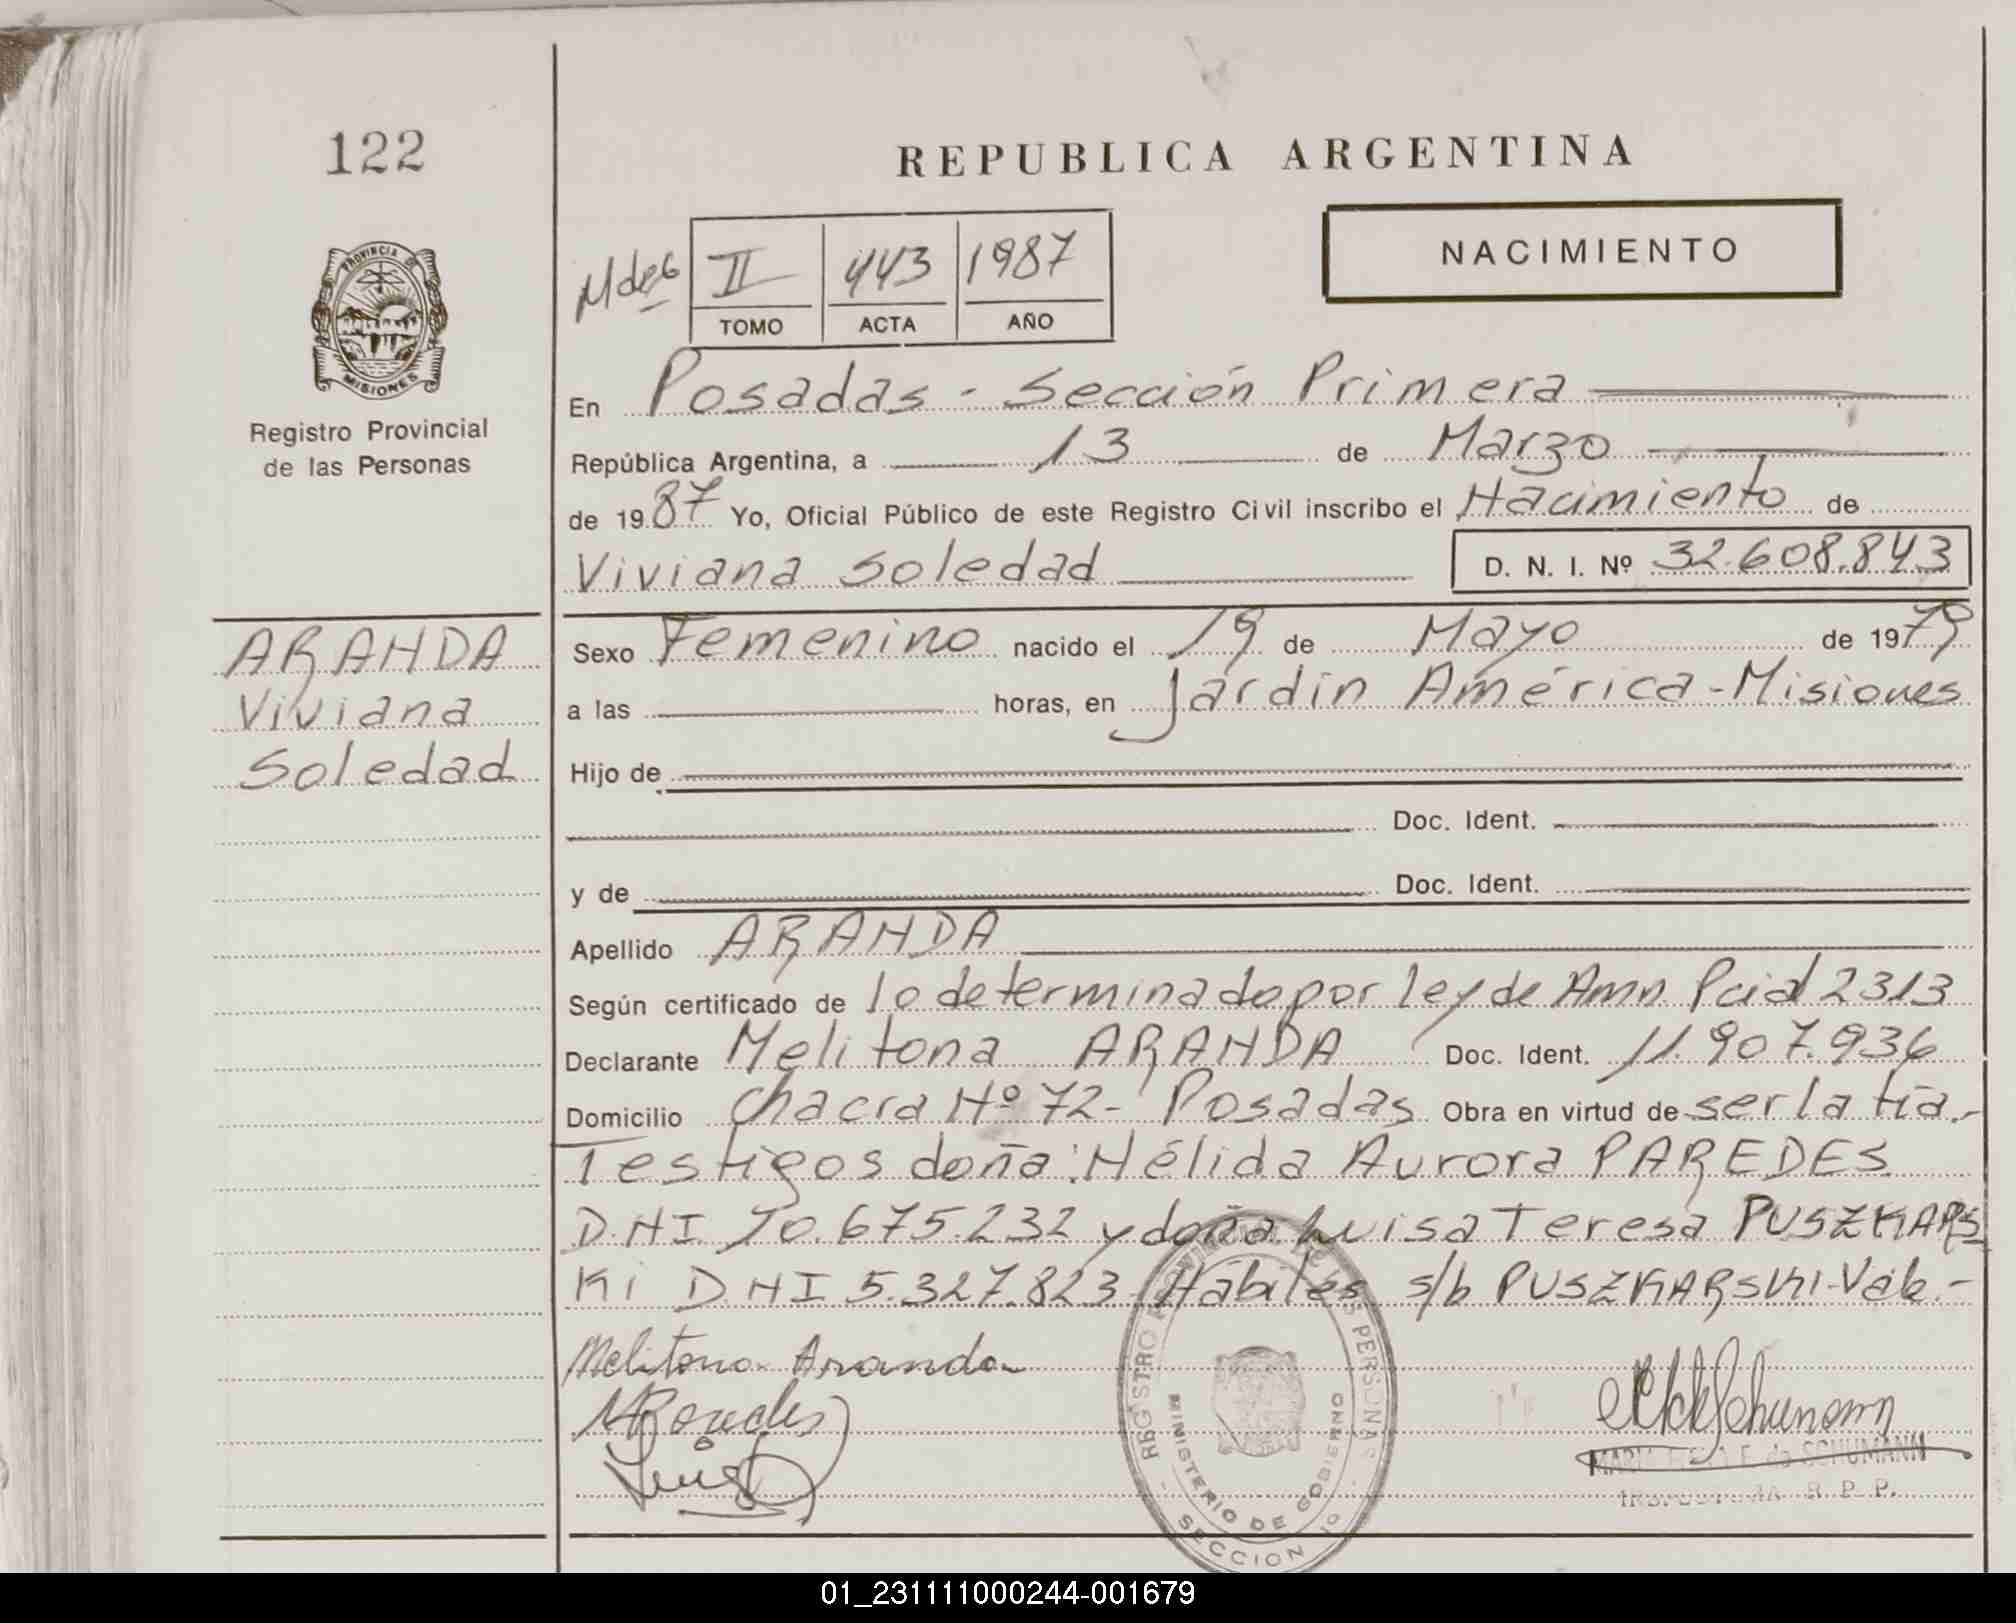 122
REPUBLICA ARGENTINA
PROVINCIA DE
MISIONES
Registro Provincial
de las Personas
II 443 1987
TOMO ACTA AÑO
NACIMIENTO
En Posadas - Sección Primera
República Argentina, a 13 de Marzo
de 1987 Yo, Oficial Público de este Registro Civil inscribo el Nacimiento de
Viviana Soledad D. N. I. Nº 32.608.843
ARANDA
Viviana
Soledad
Sexo Femenino nacido el 19 de Mayo de 1979
a las horas, en Jardín América - Misiones
Hijo de
Doc. Ident.
y de Doc. Ident.
Apellido ARANDA
Según certificado de lo determinado por ley de Amn Pcial 2313
Declarante Melitona ARANDA Doc. Ident. 11.907.936
Domicilio Chacra Nº 72 - Posadas Obra en virtud de ser la tía.-
Testigos doña: Nélida Aurora PAREDES
D.N.I. 10.675.232 y doña Luisa Teresa PUSZKARS
Ki D.N.I 5.327.823 Hábiles s/b PUSZKARSKI-Vale.-
Melitona Aranda
REGISTRO PROVINCIAL DE LAS PERSONAS
MINISTERIO DE GOBIERNO
SECCION 1º
de SCHUMANN
R. P. P.
01_231111000244-001679